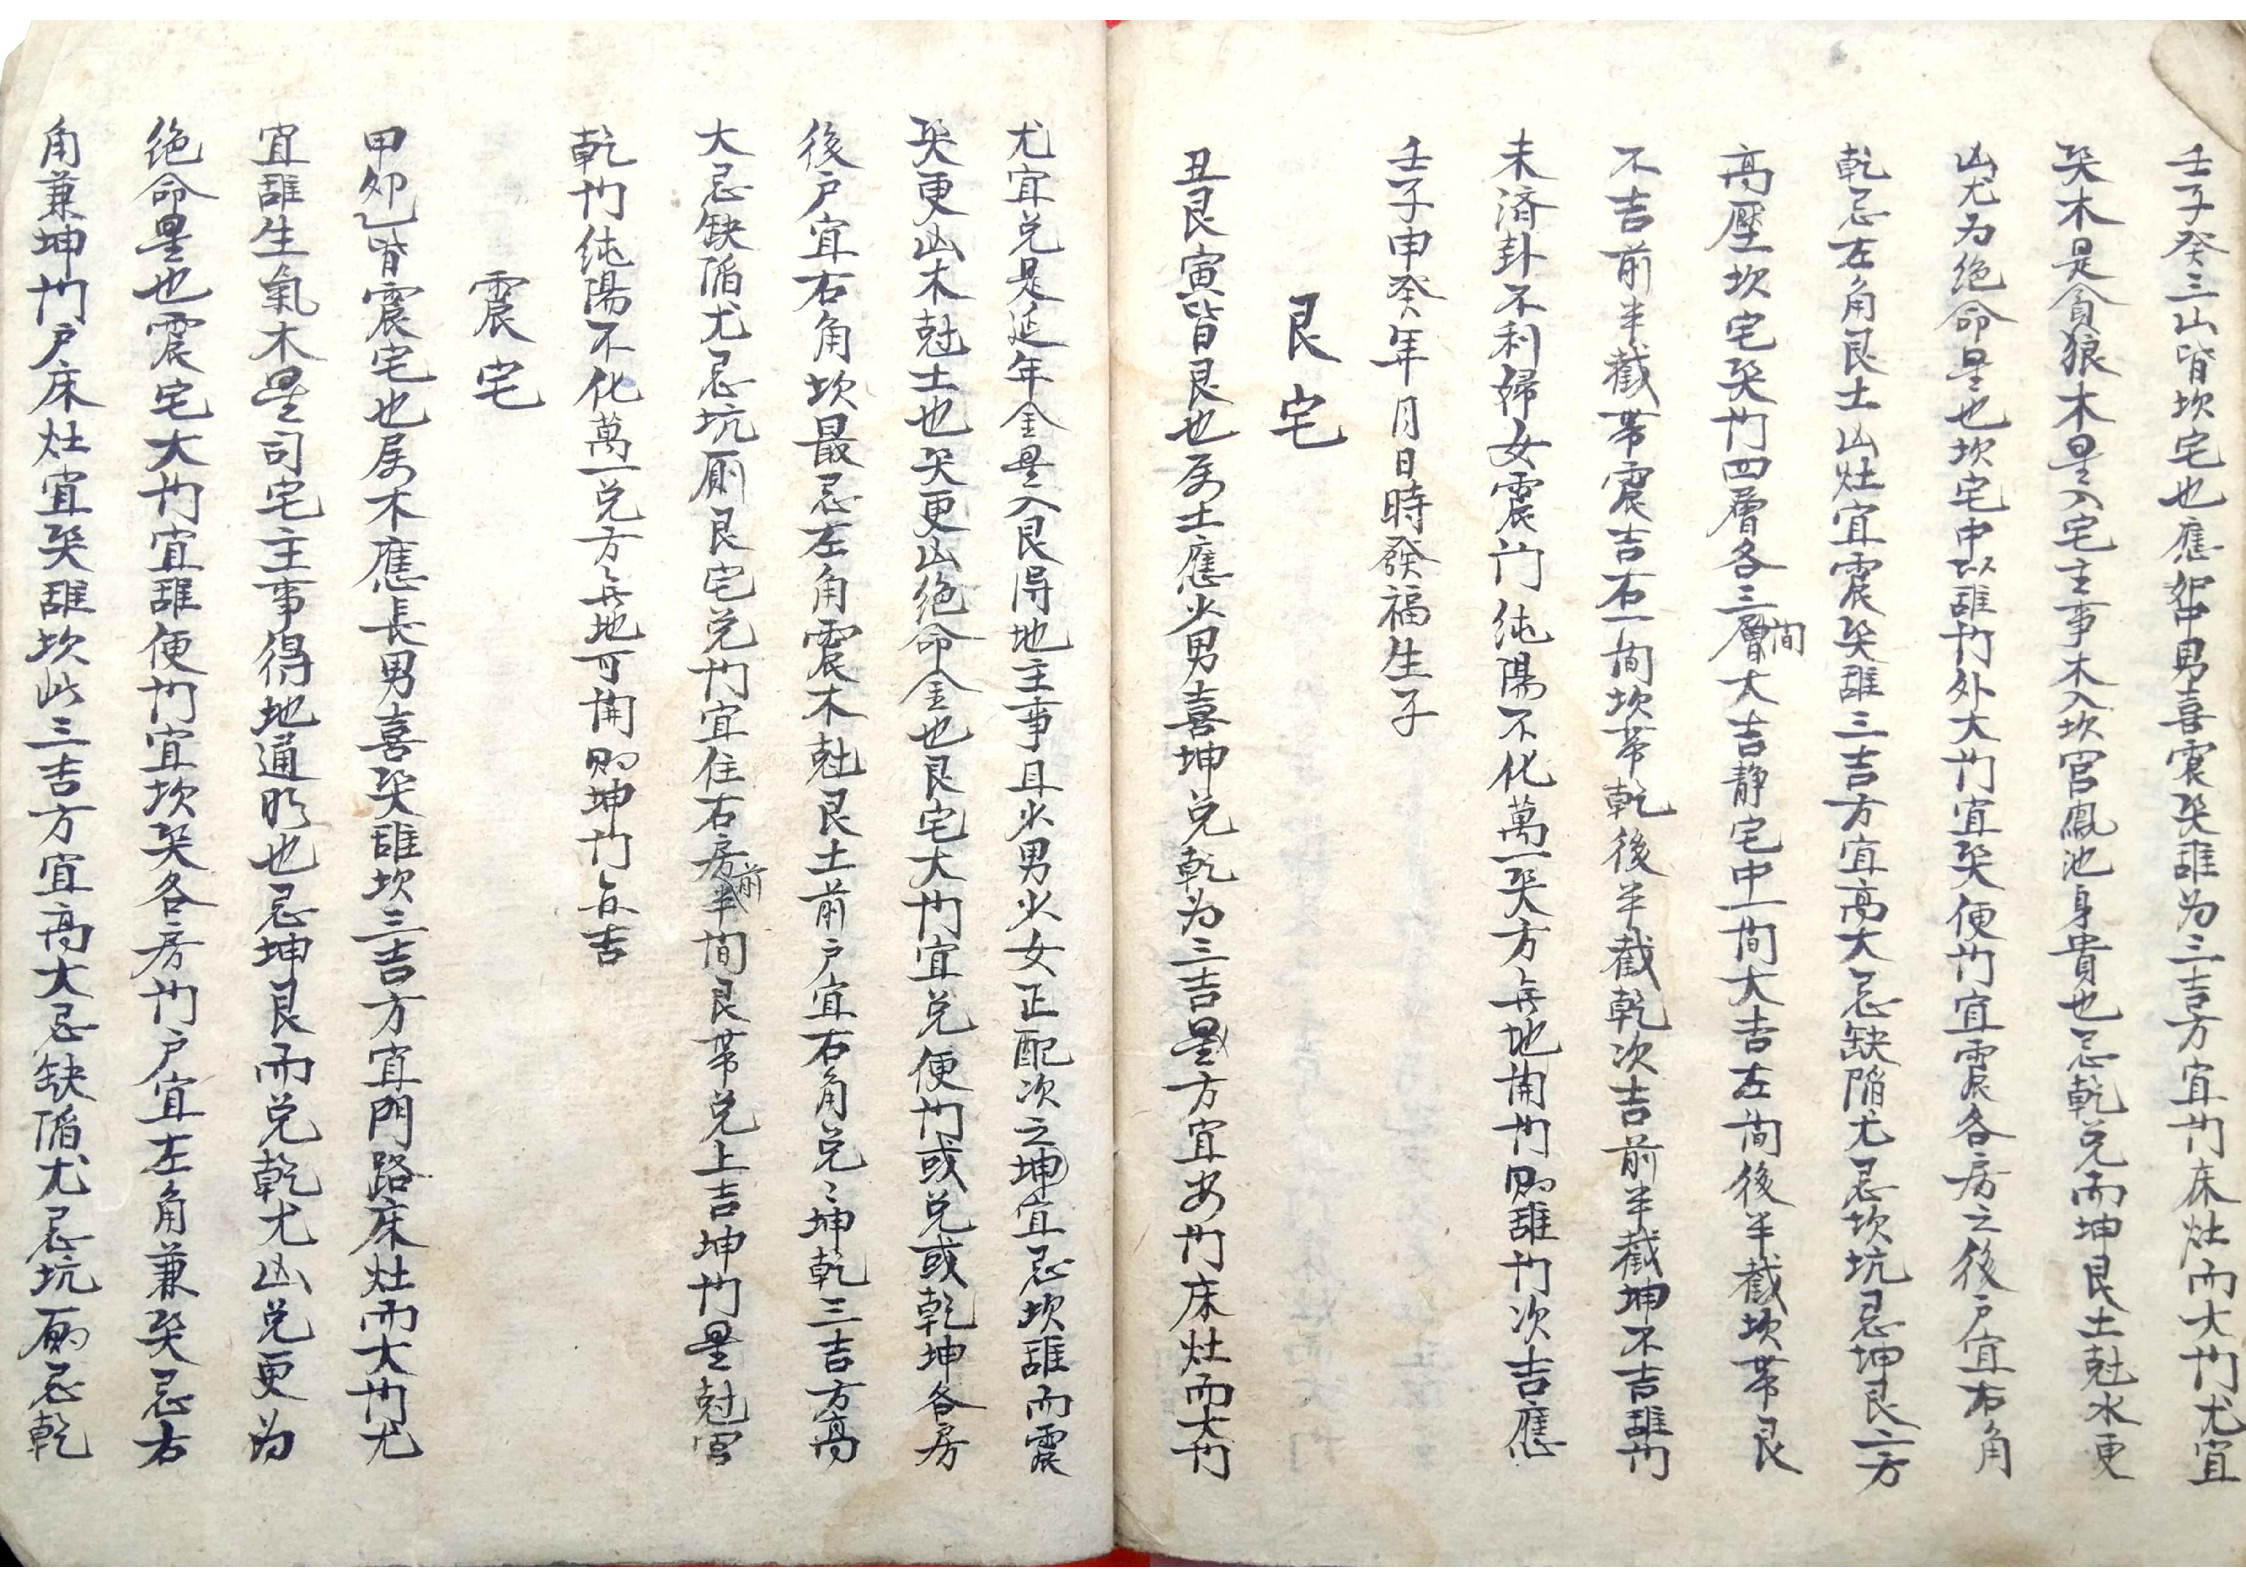 壬子癸三山皆坎宅也應中男喜震巽離为三吉方宜门床灶而大门尤宜
巽木是貪狼木星入宅主事木入坎宮鳳池身貴也忌乾兑而坤艮土尅水更
凶尤为绝命星也坎宅中以離门外大门宜巽便门宜震各房之後户宜右角
乾忌左角艮土凶灶宜震巽離三吉方宜高大忌缺陷尤忌坎坑忌坤艮二方
高壓坎宅巽门四層各三間層大吉静宅中一间大吉左间後半截坎带艮
不吉前半截带震吉右一间坎带乾後半截乾次吉前半截坤不吉離门
未済卦不利婦女震门纯陽不化萬一巽方無地開门则離门次吉應
壬子申癸年月日時發福生子
艮宅
丑艮寅皆艮也属土應少男喜坤兑乾为三吉星方宜安门床灶而大门
尤宜兑是延年金星入艮得地主事且少男少女正配次之坤宜忌坎離而震
巽更凶木尅土也巽更凶绝命金也艮宅大门宜兑便门或兑或乾坤各房
後户宜右角坎最忌左角震木尅艮土前户宜右角兑〻坤乾三吉方高
大忌缺陷尤忌坑厠艮宅兑门宜住右房前半间艮带兑上吉坤门星尅宮
乾门纯陽不化萬一兑方無地可開则坤门亦吉
震宅
甲卯乙皆震宅也属木應長男喜巽離坎三吉方宜門路床灶而大门尤
宜離生氣木星司宅主事得地通明也忌坤艮而兑乾尤凶兑更为
绝命星也震宅大门宜離便门宜坎巽各房门户宜左角兼巽忌右
角兼坤门户床灶宜巽離坎此三吉方宜高大忌缺陷尤忌坑厠忌乾